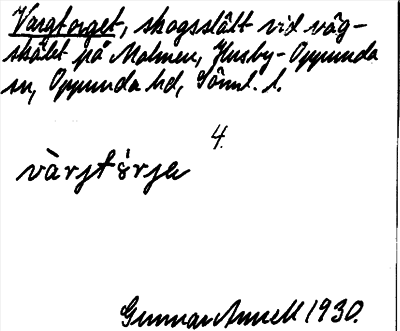 Vargtorget, skogsslätt vid väg-
skälet på Malmen, Husby-Oppunda
sn, Oppunda hd, Söml. l.
4.
vàrjtὸrjeₙ
Gunnar Annell 1930.